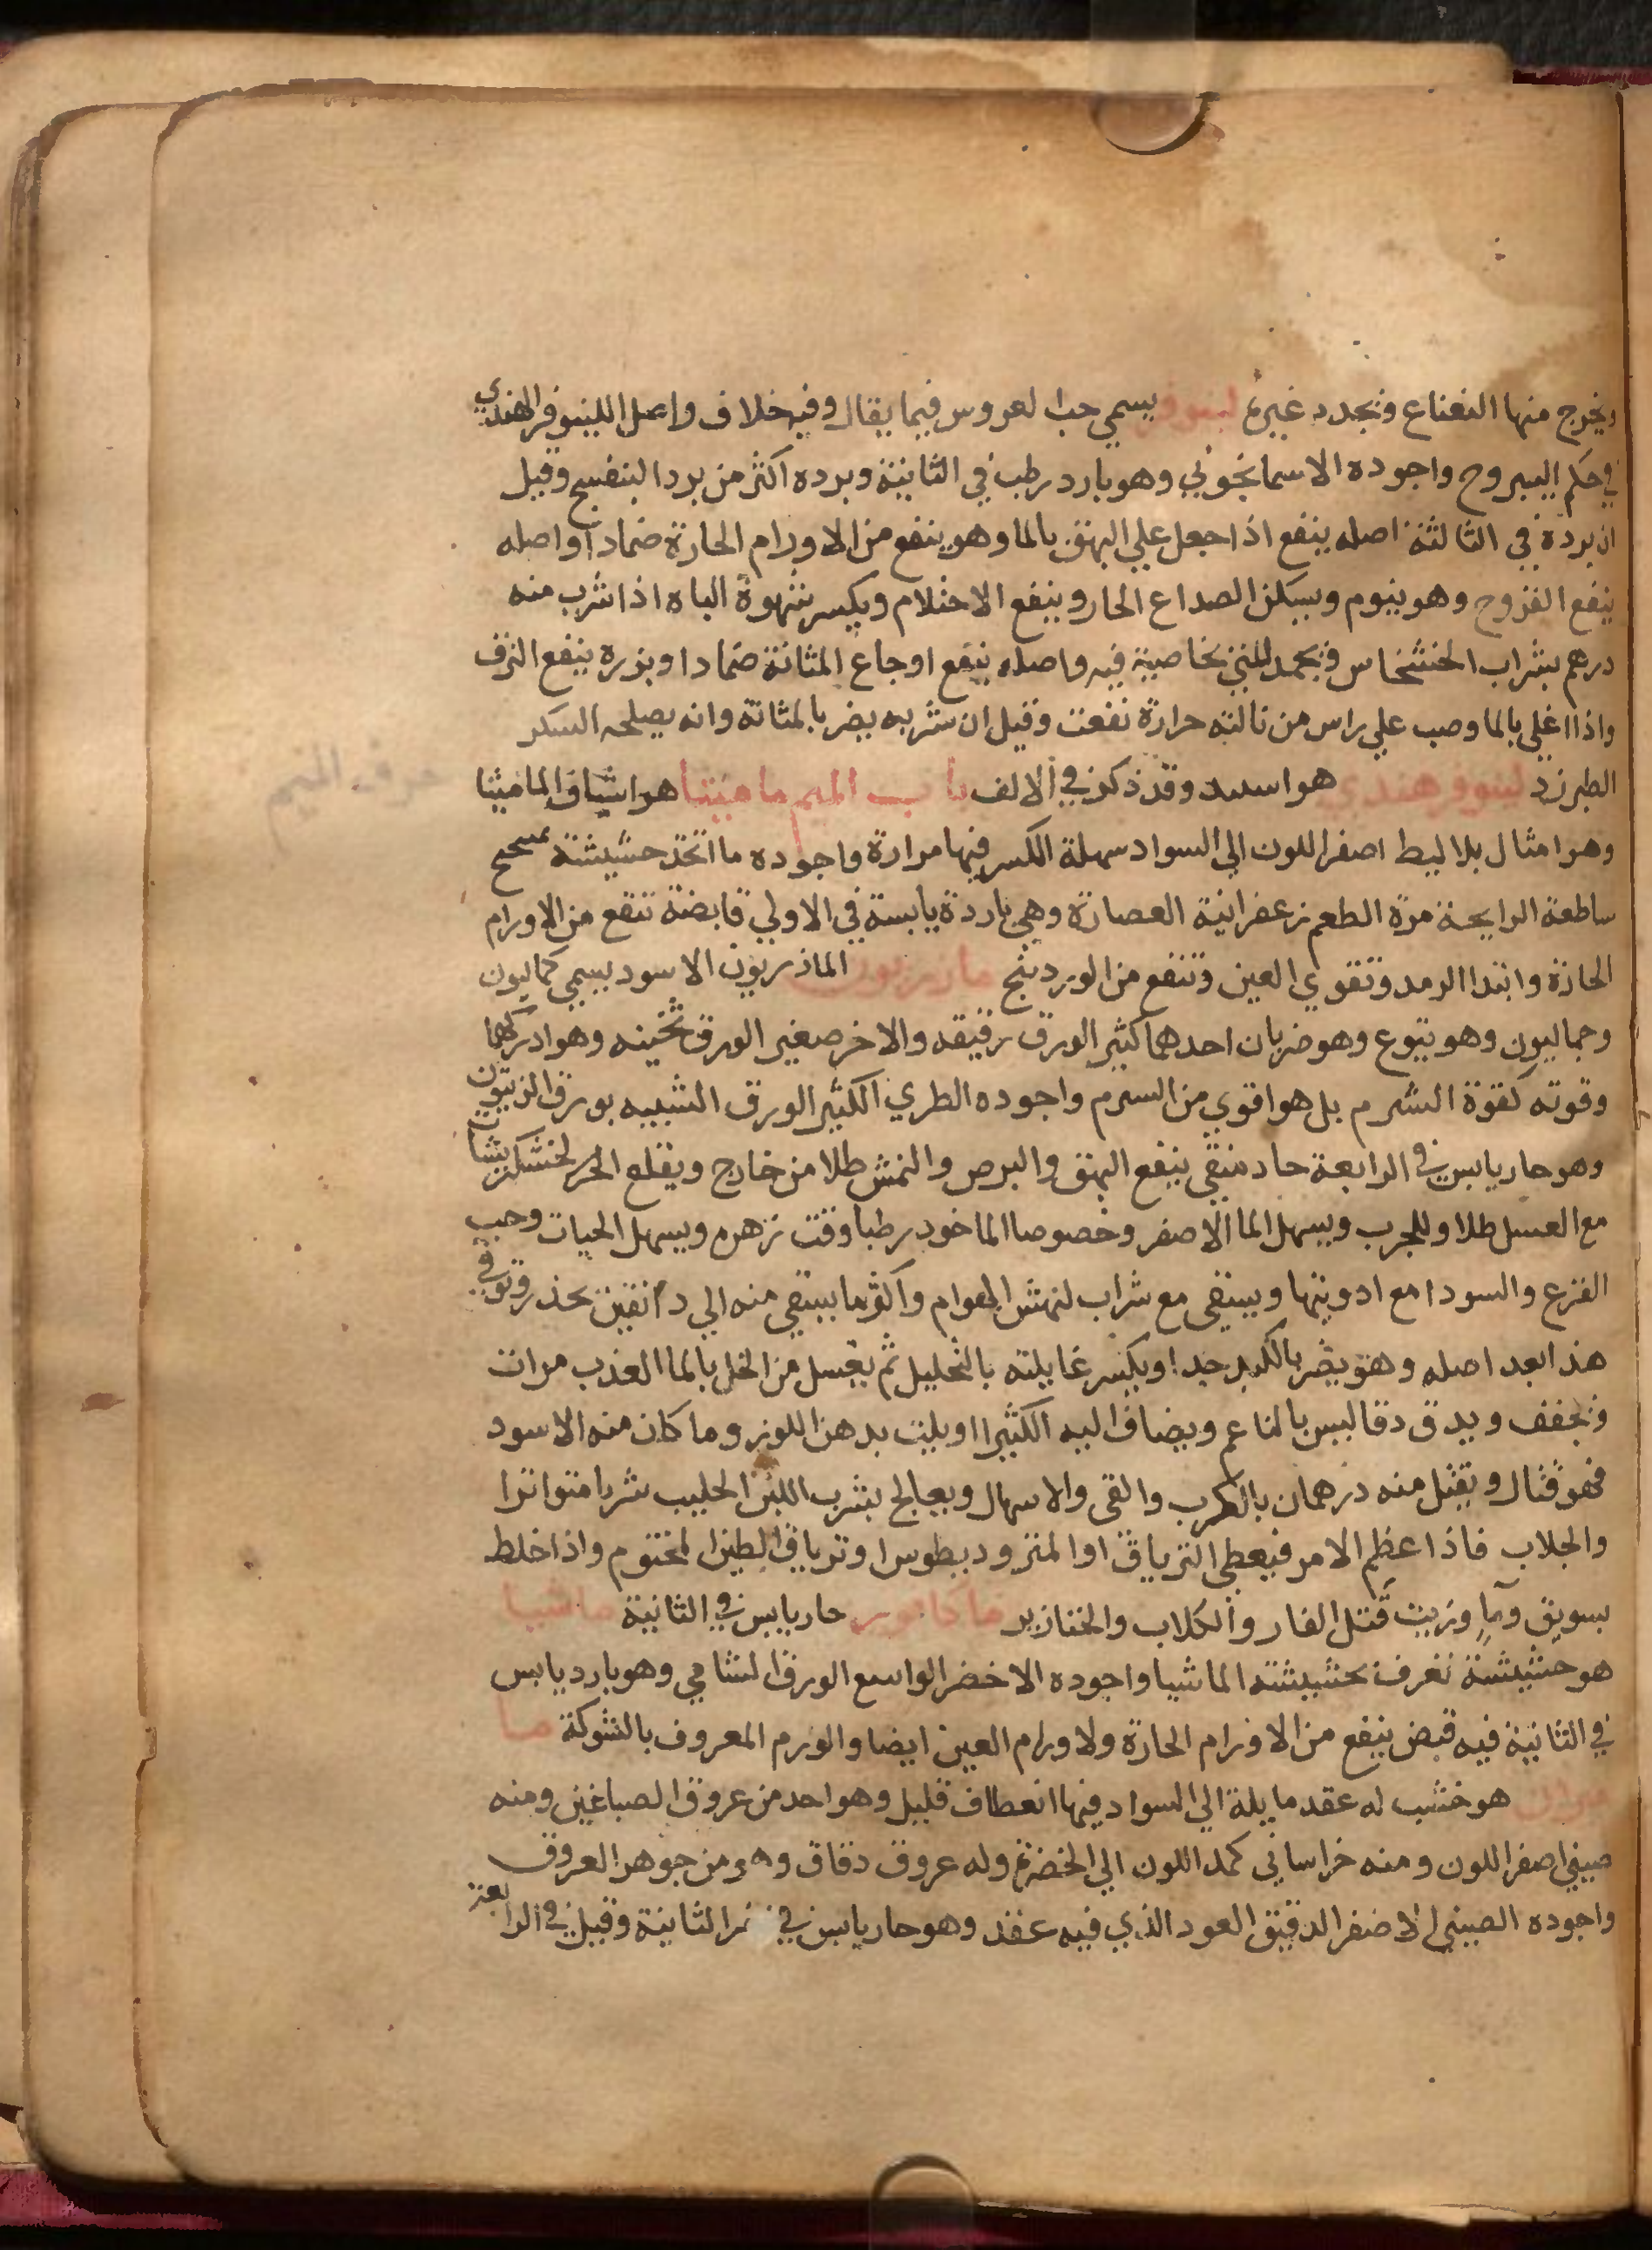 ويخرج منها النعناع ويجدد غيره لينوفر يسمي حب العروس فيما يقال وفيه خلاف واصل اللينوفر الهندي
في حكم اليبروح واجوده الاسمانجوني وهو بارد رطب في الثانية وبرده اكثر من برد البنفسج وقيل
ان برده في الثالثة اصله ينفع اذا جعل علي البهق بالما وهو ينفع من الاورام الحارة ضمادا واصله
ينفع القروح وهو ينوم ويسكن الصداع الحار وينفع الاحتلام ويكسر شهوة الباه اذا شرب منه
درهم بشراب الخشخاش ويجمد المني بخاصية فيه واصله ينفع اوجاع المثانة ضمادا وبزره ينفع النزف
واذا اغلي بالما وصب علي راس من نالته حرارة نفعت وقيل ان شربه يضر بالمثانة وانه يصلحه السكر
الطبرزد لينوفر هندي هو وقد ذكر في الالف باب الميم ماميثا هو اشياف الماميثا
حرف الميم
وهو امثال بلاليط اصفر اللون الي السواد سهلة الكسر فيها مرارة واجوده ما اتخذ حشيشة
ساطعة الرايحة مرة الطعم زعفرانية العصارة وهي باردة يابسة في الاولي قابضة تنفع من الاورام
الحارة وابتدا الرمد وتقوي العين وتنفع من الوردينج مازريون الماذريون الاسود يسمي كماليون
وجماليون وهو يتوع وهو ضربان احدهما كثير الورق رقيقه والاخر صغير الورق ثخينه وهو
وقوته كقوة الشبرم بل هو اقوي من الشبرم واجوده الطري الكثير الورق الشبيه بورق الزيتون
وهو حار يابس في الرابعة حاد منقي ينفع البهق والبرص والنمش طلا من خارج ويقلع
مع العسل طلا وللجرب ويسهل الما الاصفر وخصوصا الماخود رطبا وقت زهره ويسهل الحيات وحب
القرع والسودا مع ادويتها ويسقي مع شراب لنهش الهوام واكثر ما يسقي منه الي دانقين بحذر وتوقي
هذا بعد اصله وهو يضر بالكبد جدا ويكسر غايلته بالتخليل ثم يغسل من الخل بالما العذب مرات
ويجفف ويدق دقا ليس بالناعم ويضاف اليه الكثيرا ويلت بدهن اللوز وما كان منه الاسود
فهو قتال ويقتل منه درهمان بالكرب والقي والاسهال ويعالج بشرب اللبن الحليب شربا متواترا
والجلاب فاذا عظم الامر فيعطي الترياق او المثروديطوس او ترياق الطين المختوم واذا خلط
بسويق وما وزيت قتل الفار والكلاب والخنازير حار يابس في الثانية ماشيا
هو حشيشة تعرف بحشيشة الماشيا واجوده الاخضر الواسع الورق الشامي وهو بارد يابس
في الثانية فيه قبض ينفع من الاورام الحارة ولاورام العين ايضا والورم المعروف بالشوكة ما
ميران هو خشب له عقد مايلة الي السواد فيها انعطاف قليل وهو احد من عروق الصباغين ومنه
صيني اصفر اللون ومنه خراساني كمد اللون الي الخضرة وله عروق دقاق وهو من جوهر العروق
واجوده الصيني الاصفر الدقيق العود الذي فيه عقد وهو حار يابس في الثانية وقيل في الرابعة